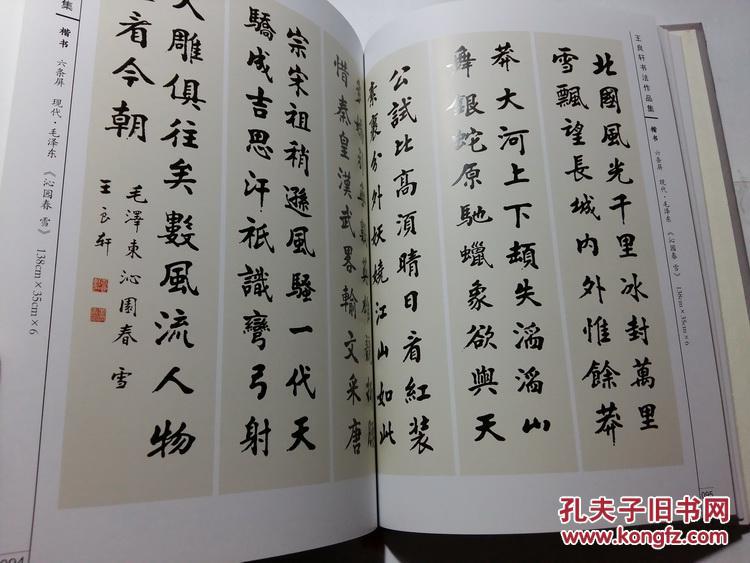 王良轩书法作品集 楷书 六条屏 现代·毛泽东《沁园春 雪》 138cm×35cm×6
北國風光千里冰封萬里
雪飄望長城内外惟餘莽
莽大河上下頓失滔滔山
舞銀蛇原馳蠟象欲與天
公試比高須晴日看紅装
素裹分外妖嬈江山如此
惜秦皇漢武畧輸文采唐
宗宋祖稍遜風騷一代天
驕成吉思汗祇識彎弓射
大雕俱往矣數風流人物
看今朝
毛澤東沁園春 雪
王良轩
集 楷书 六条屏 现代·毛泽东《沁园春 雪》 138cm×35cm×6
孔夫子旧书网
www.kongfz.com